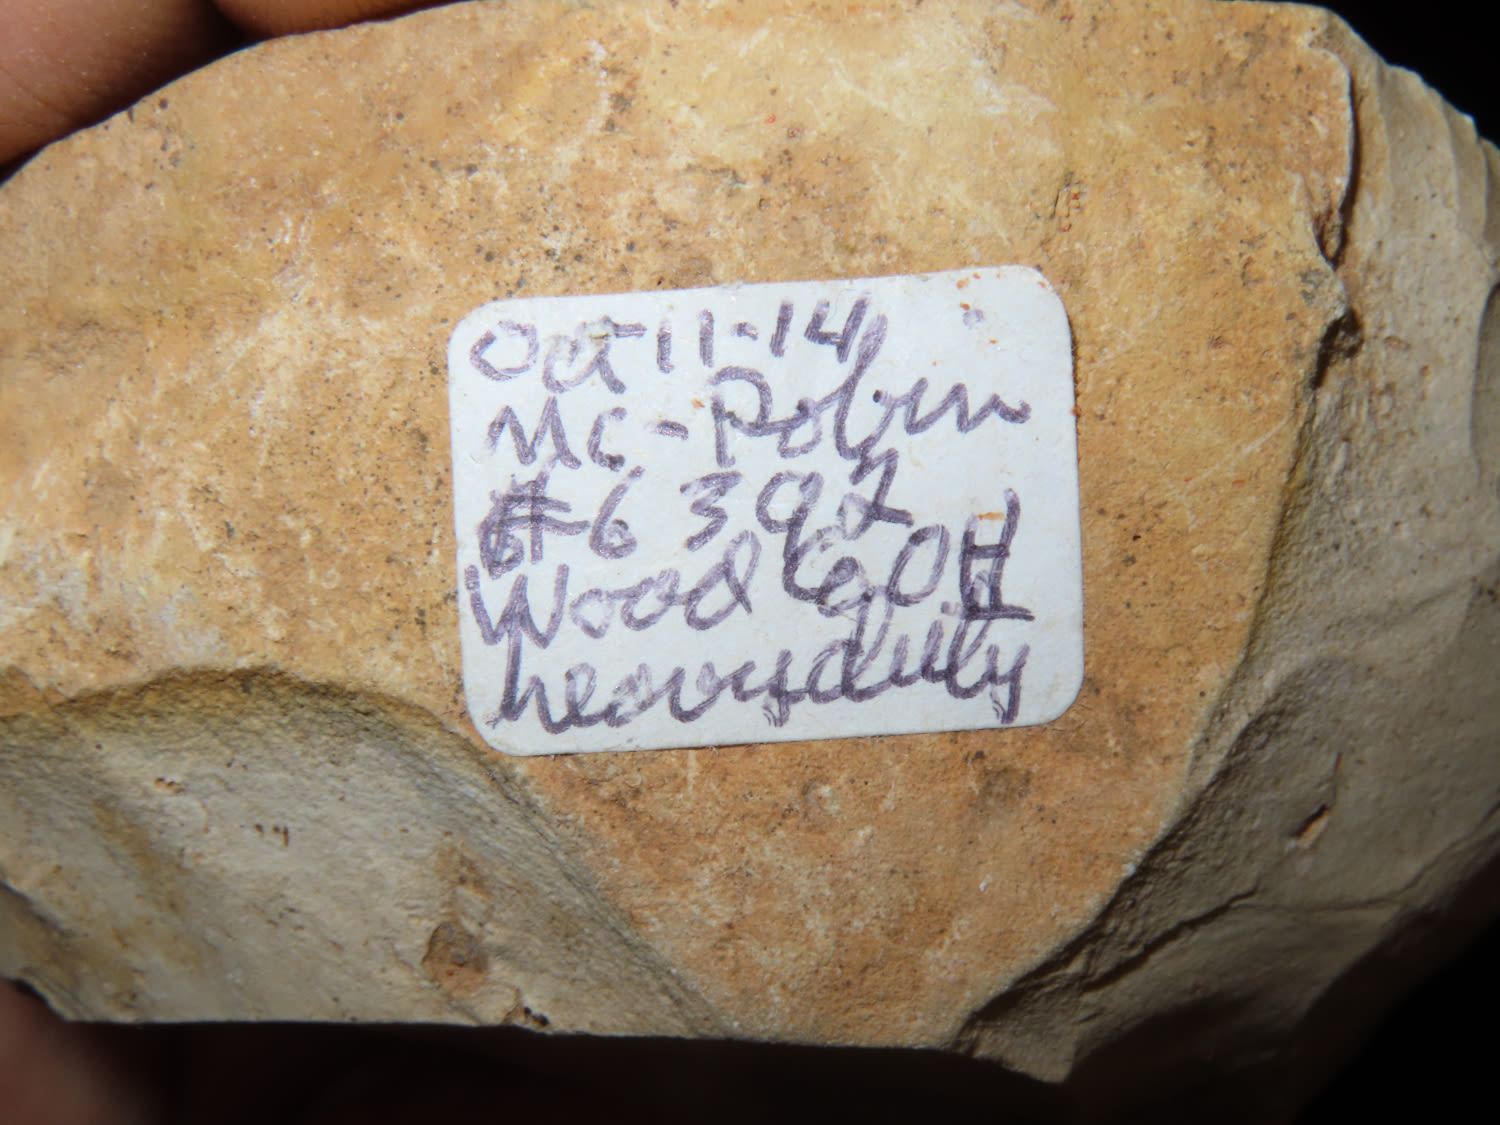 Oct 11-14
MC-Robin
#6 392
Wood Co. OH
heavy duty